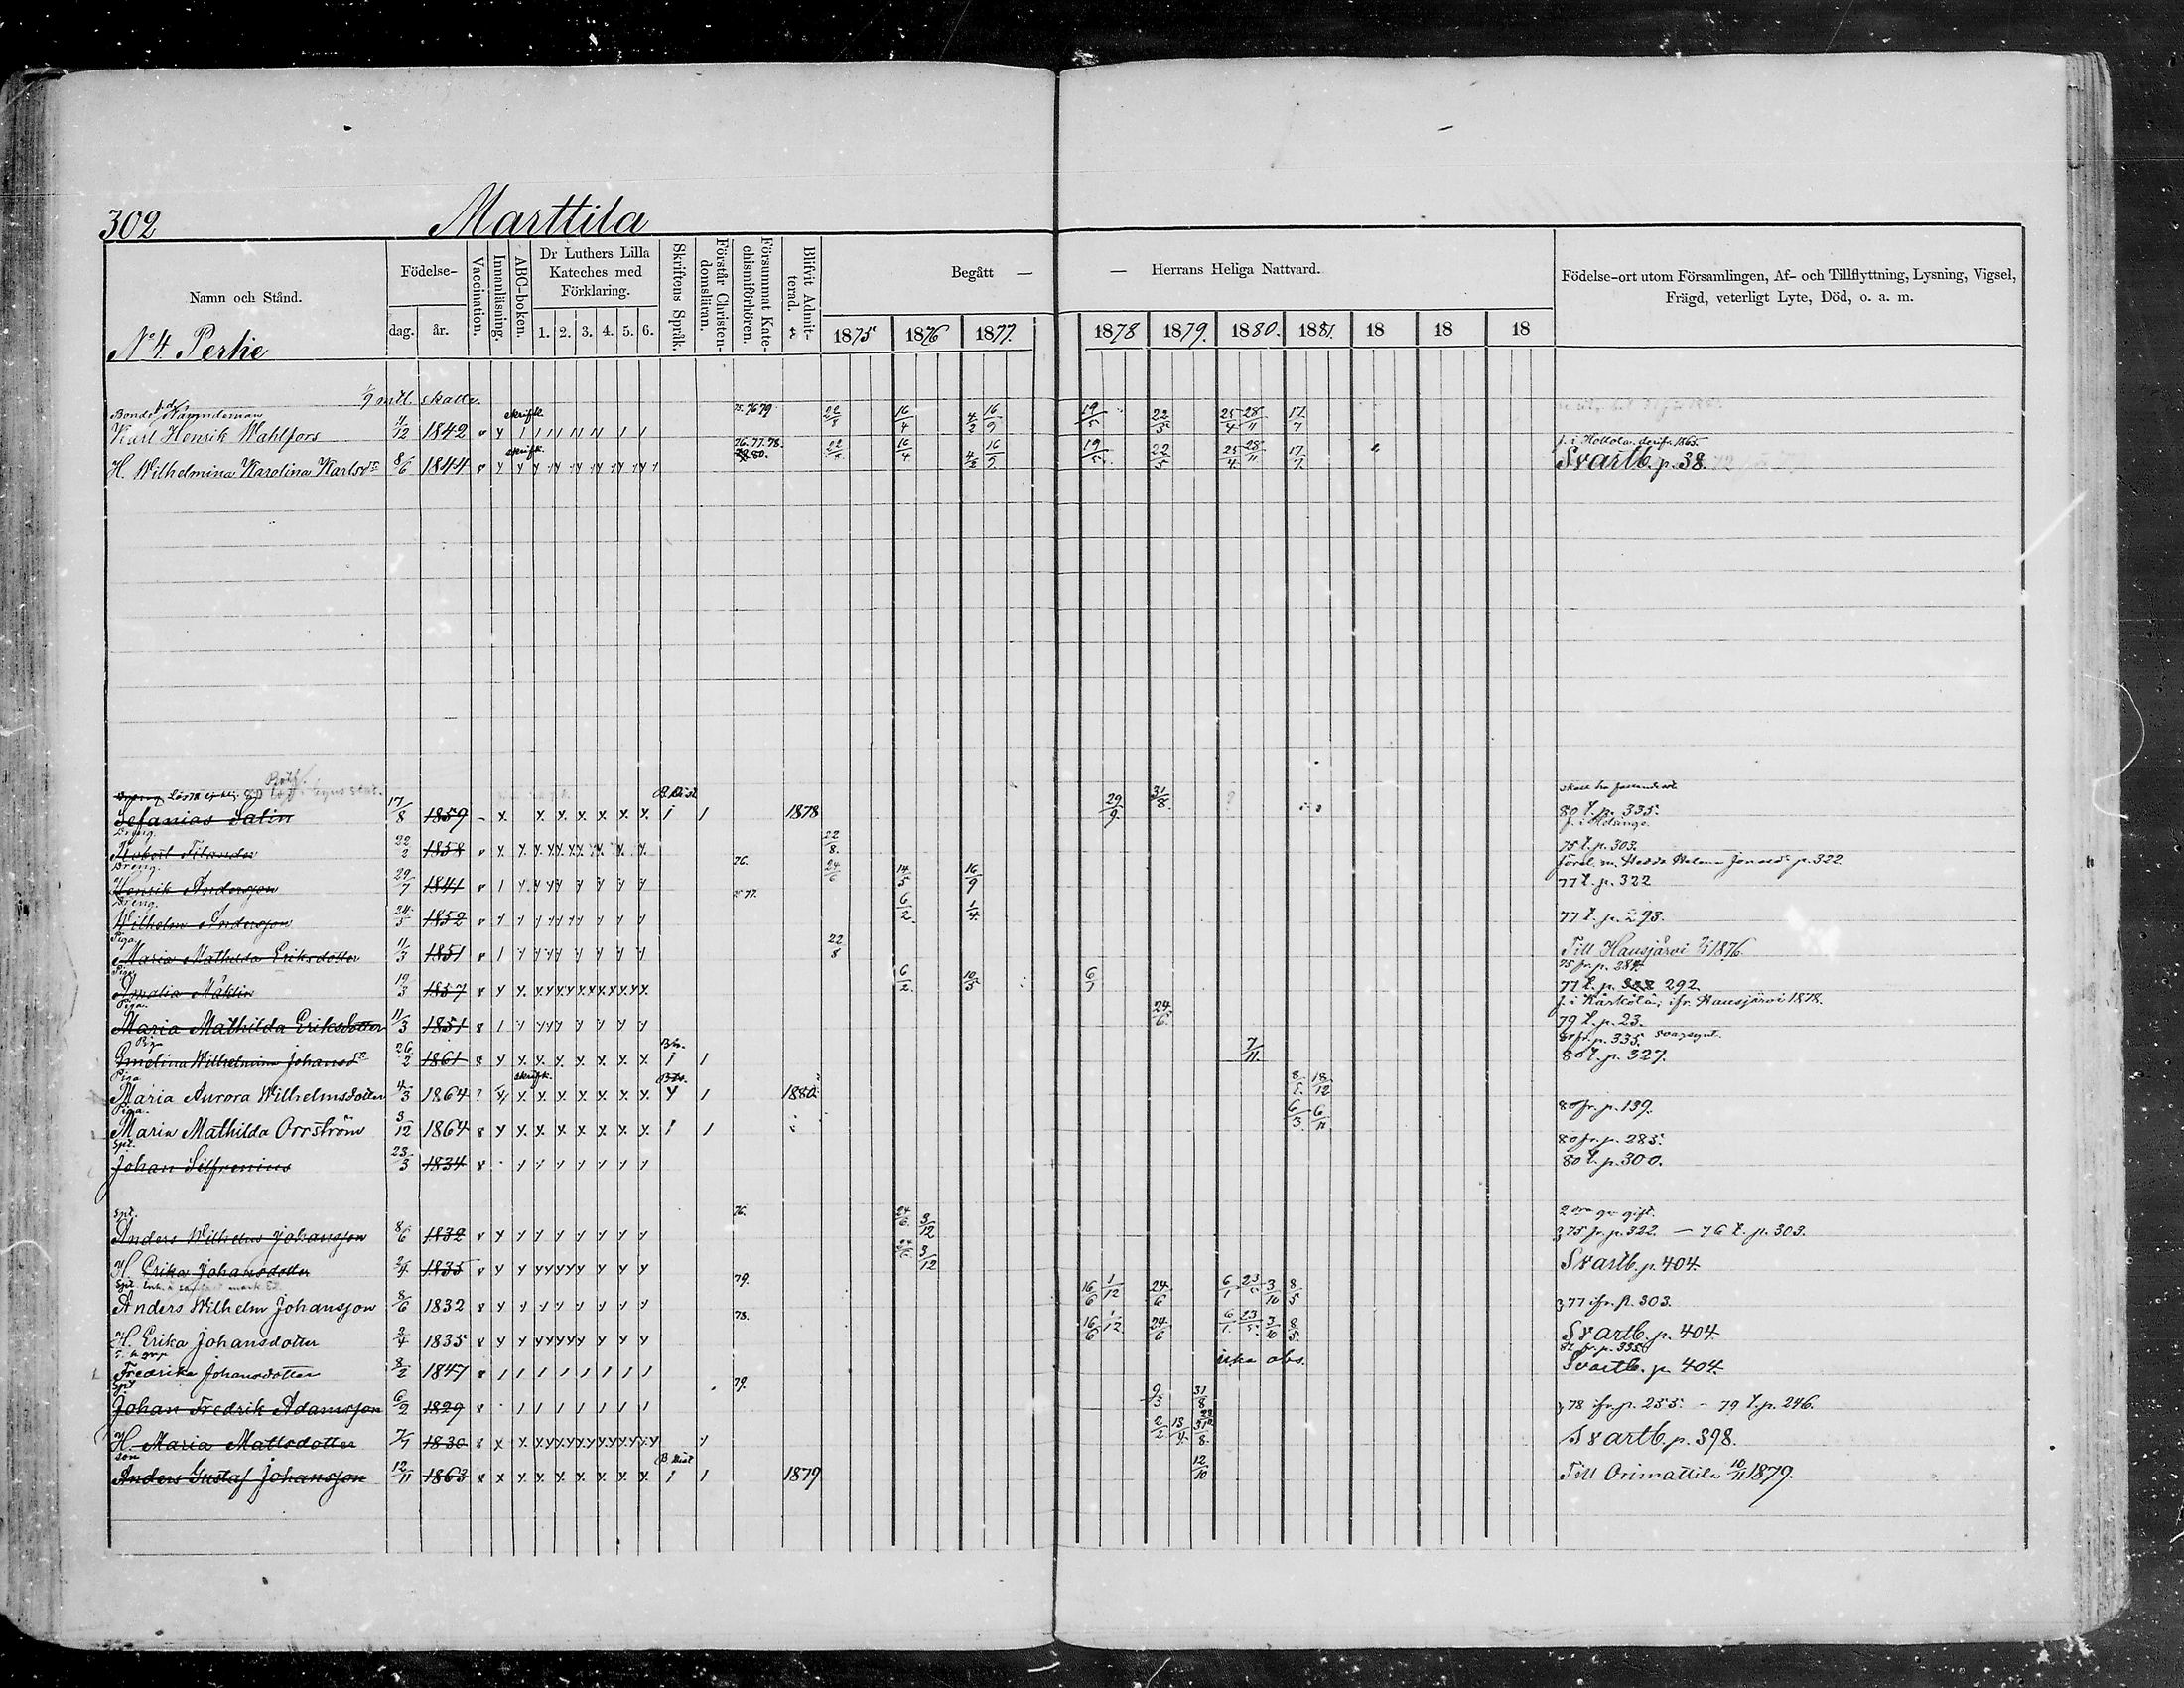 302
Marttila
Namn och Stånd.
Födelse-
dag.
år.
Vaccination.
Innanläsning.
ABC-boken.
Dr Luthers Lilla
Kateches med
Förklaring.
1. 2. 3. 4. 5. 6.
Skriftens Språk.
Förstår Christen-
domsläran.
Försummat Kate-
chismiförhören.
Blifvit Admit-
terad.
Begått — — Herrans Heliga Nattvard.
1875 1876 1877. 1878 1879. 1880. 1881. 18 18 18
Födelse-ort utom Församlingen, Af- och Tillflyttning, Lysning, Vigsel,
Frägd, veterligt Lyte, Död, o. a. m.
No 4 Perhe
1/9 mtl. skatte
Bonde Nämndeman
Karl Henrik Wahlfors 4/12 1842 skriftk. 16/4 4/2 16/9 19/5 22/5 25/4 28/11 17/7
f. i Hollola. derifr. 1865.
H. Wilhelmina Karolina Karlsd:r 8/6 1844 skriftk. 76. 77. 78. 80. 16/4 4/2 16/9 19/5 22/5 25/4 28/11 17/7 Svartb. p. 38.
Sefanias Salin 17/8 1859 1878 29/9 31/8 80 t. p. 335.
Dreng. 22/2 1858 22/8 75 t. p. 303.
Dreng. 76.
Henrik Andersson 29/7 1841 24/6 14/5 16/9 77 t. p. 322
Dreng.
Wilhelm Andersson 24/5 1852 6/2 1/4 77 t. p. 293.
Piga.
Maria Mathilda Eriksdotter 11/3 1851 22/8 Till Hausjärvi 1876
Piga 75 fr. p. 284.
Amalia Mäklin 19/3 1857 6/2 10/5 6/1 77 t. p. 292
Piga. f. i Kärkölä, ifr. Hausjärvi 1878.
Maria Mathilda Eriksdotter 11/3 1851 24/6 79 t. p. 23.
Piga 80 fr. p. 335. svagsynt.
Emelina Wilhelmina Johansd:r 26/2 1861 7/11 80 t. p. 327.
Piga skriftk.
Maria Aurora Wilhelmsdotter 4/3 1864 ? 1880 8/5 18/12 80 fr. p. 139.
Piga.
Maria Mathilda Orrström 3/12 1864 6/3 6/11 80 fr. p. 285.
Spt.
Johan Silfvenius 23/3 1834 80 t. p. 300.
Spt. 76. 2dra gr gift.
Anders Wilhelm Johansson 8/6 1832 24/6 3/12 75 fr. p. 322. — 76 t. p. 303.
H. Erika Johansdotter 2/4 1835 24/6 3/12 Svartb. p. 404.
Spt. 79.
Anders Wilhelm Johansson 8/6 1832 16/6 1/12 24/6 6/1 23/5 3/10 8/5 77 ifr. p. 303.
78.
H. Erika Johansdotter 2/4 1835 16/6 1/12 24/6 6/1 23/5 3/10 8/5 Svartb. p. 404.
Fredrika Johansdotter 8/2 1847 icke abs. Svartb. p. 404.
Spt 79.
Johan Fredrik Adamsson 6/2 1829 9/5 31/8 78 ifr. p. 255. – 79 t. p. 246.
H. Maria Mattsdotter 7/7 1830 2/2 13/4 31/8 Svartb. p. 398.
son
Anders Gustaf Johansson 12/11 1863 1879 12/10 Till Orimattila 10/11 1879.